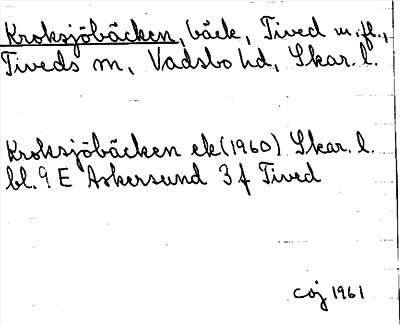 Kroksjöbäcken, bäck, Tived m.fl.,
Tiveds sn, Vadsbo hd, Skar. l.
Kroksjöbäcken ek (1960) Skar. l.
bl. 9 E Askersund 3 f Tived
coj 1961